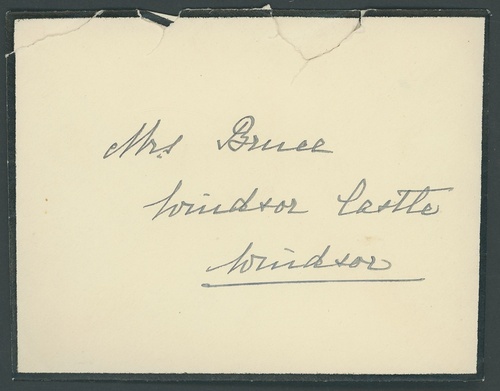 Mrs Bruce
Windsor Castle
Windsor